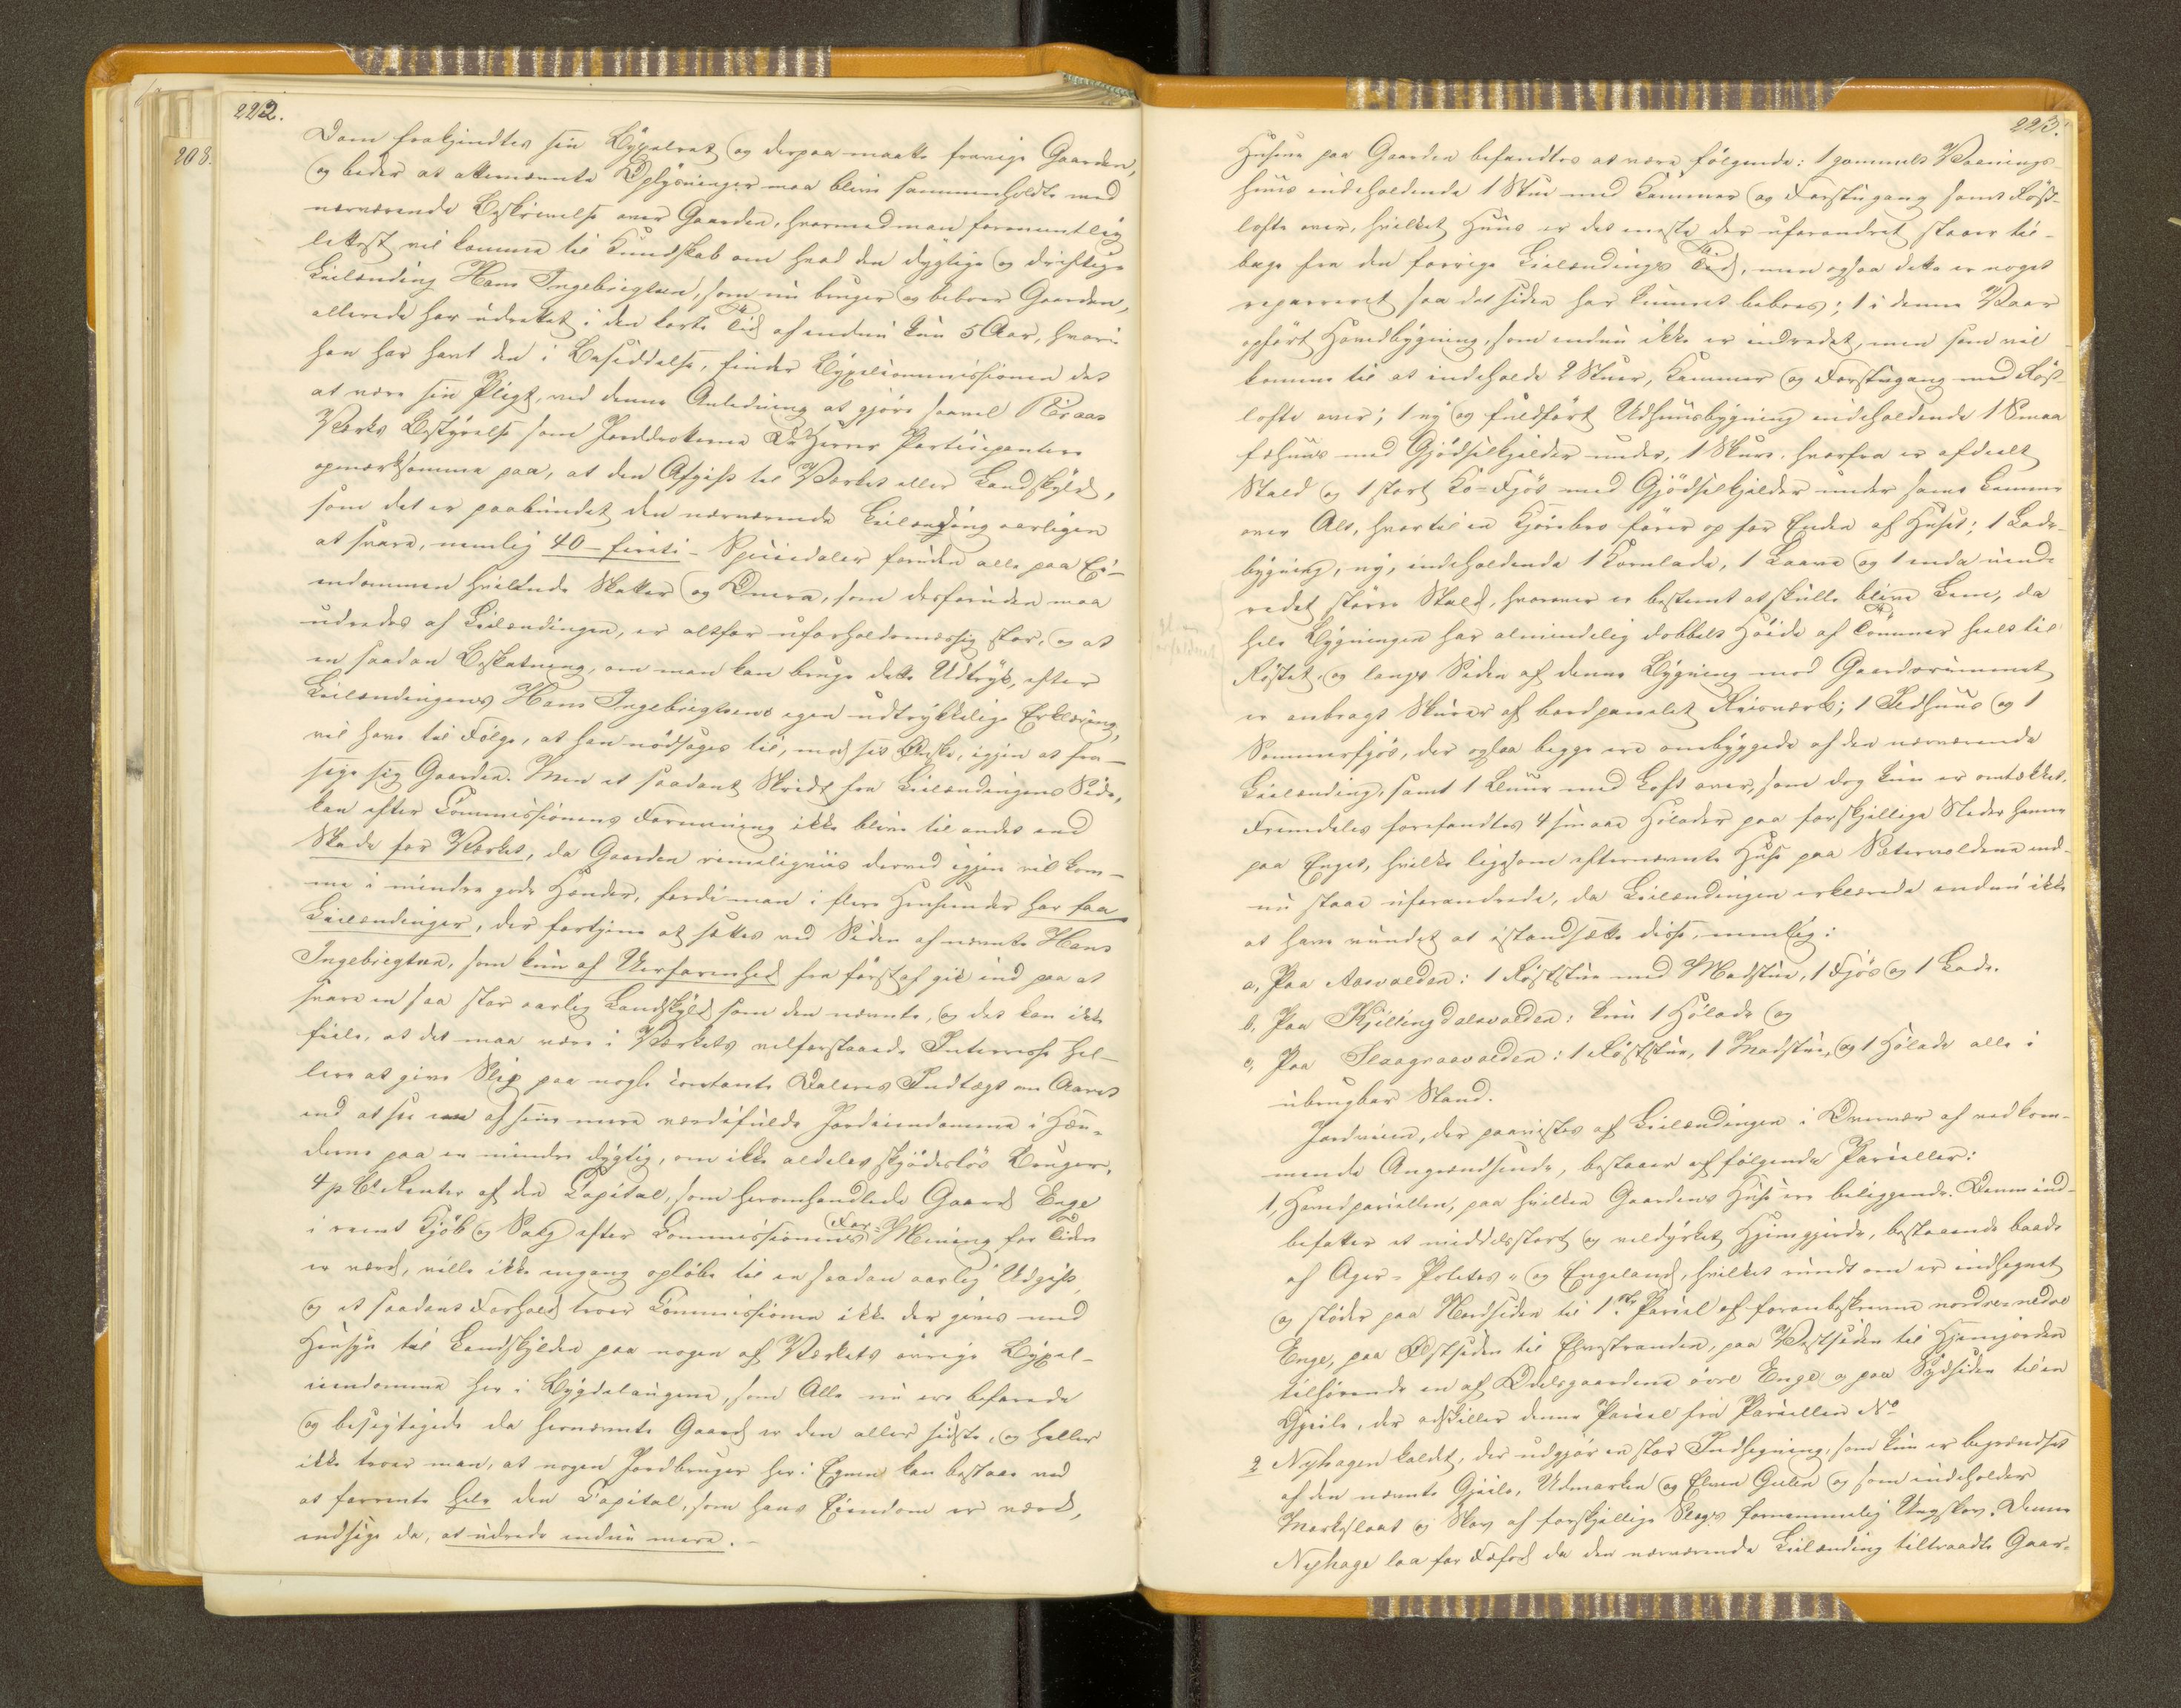 222.
Dom frakjendtes sin Bygselret og derpaa maatte fravige Gaarden,
og beder at atternævnte Oplysninger maa blive sammenholdte med
nærværende Beskrivelse over Gaarden, hvormed man formentlig
lettest vil komme til Kundskab om hvad den dygtige og driftige
Leilænding Hans Ingebrigtsen, som nu bruger og beboer Gaarden,
allerede har udrettet i den korte Tid af endnu kun 5 Aar, hvori
han har havt den i Besiddelse, finder Bygselcommissionen det
at være sin Pligt, ved denne Anledning at gjøre saavel Røraas
Værks Bestyrelse som Jorddrotterne De Herrer Participantere
opmærksomme paa, at den Afgift til Værket eller Landskyld,
som det er paabundet den nærværende Leilænding aarligen
at svare, nemlig 40 - firti - Speciedaler foruden alle paa Ei-
endommen hvilende Skatter og Onera, som desforuden maa
udredes af Leilændingen, er altfor uforholdsmæssig stor, og at
en saadan Beskatning, om man kan bruge dette Udtryk, efter
Leilændingens Hans Ingebrigtsens egen udtrykkelige Erklæring,
vil have til Følge, at han nødsages til, mod sit Ønske, igjen at fra-
sige sig Gaarden. Men et saadant Skridt fra Leilændingens Side,
kan efter Commissionens Formening ikke blive til andet end
Skade for Værket, da Gaarden rimeligviis derved igjen vil kom-
me i mindre gode Hænder, fordi man i flere Henseender har faa
Leilændinger, der fortjene at sættes ved Siden af nævnte Hans
Ingebrigtsen, som kun af Uerfarenhed fra først af gik ind paa at
svare en saa stor aarlig Landskyld som den nævnte, og det kan ikke
feile, at det maa være i Værkets velforstaaede Interesse hel-
lere at give Slip paa nogle contante Dalers Indtægt om Aaret
end at see een af sine mere værdifulde Jordeiendomme i Hæn-
derne paa en mindre dygtig, om ikke aldeles skjødesløs Bruger.
4 p Ct Renter af den Capital, som heromhandlede Gaard Enge
i reent Kjøb og Salg efter Commissionens (For-)Mening for Tiden
er værd, ville ikke engang opløbe til en saadan aarlig Udgift,
og et saadant Forhold troer Commissionen ikke der gives med
Hensyn til Landskylden paa nogen af Værkets øvrige Bygsel-
eiendomme her i Bygdelaugene, som Alle nu ere befarede
og besigtigede da hernævnte Gaard er den aller sidste, og heller
ikke troer man, at nogen Jordbruger her i Egnen kan bestaae ved
at forrente hele den Capital, som hans Eiendom er værd,
endsige da, at udrede endnu mere.
208.
223.
Husene paa Gaarden befandtes at være følgende: 1 gammelt Vaanings-
huus indeholdende 1 Stue med Kammer og Forstugang samt Røst-
lofte over, hvilket Huus er det eneste der uforandret staaer til-
bage fra den forrige Leilændinges Tid, men ogsaa dette er noget
repareret saa det siden har kunnet beboes; 1 i denne Vaar
opført Hovedbygning, som endnu ikke er indredet, men som vil
komme til at indeholde 2 Stuer, Kammer og Forstugang med Røst-
lofte over; 1 ny og fuldført Udhuusbygning indeholdende 1 Smaa
fæhuus med Gjødselkjelder under, 1 Skuur hvorfra er afdeelt
Stald og 1 stort Ko-Fjøs med Gjødselkjelder under samt Lemme
over Alt, hvortil en Kjørebro fører op for Enden af Huset; 1 Lade-
bygning, ny, indeholdende 1 Kornlade, 1 Laave og 1 enda uind-
redet større Stald, hvorover er bestemt at skulle blive Lem, da
hele Bygningen har almindelig dobbelt Høide af Tømmer heelt til
Røstet, og langs Siden af denne Bygning mod Gaardsrummet
er anbragt Skuurer af bordpanelet Reisværk; 1 Ildhuus og 1
Sommerfjøs, der ogsaa begge ere ombyggede af den nærværende
Leilænding, samt 1 Buur med Loft over, som dog kun er omtækket.
Fremdeles forefandtes 4 smaae Høelader paa forskjellige Steder henne
paa Enget, hvilke ligesom efternævnte Huse paa Sætervoldene end-
nu staae uforandrede, da Leilændingen erklærede endnu ikke
at have vundet at istandsætte disse, nemlig:
a, Paa Aasvolden: 1 Røststue med Madstue, 1 Fjøs og 1 Lade.
b, Paa Kjellingdalsvolden: kun 1 Hølade og
c, Paa Slaagraavolden: 1 Røststue, 1 Madstue, og 1 Hølade alle i
ubrugbar Stand.
Jordveien, der paavistes af Leilændingen i Overvær af vedkom-
mende Angrændsende, bestaaer af følgende Parceller:
1, Hovedparcellen, paa hvilken Gaardens Huse ere beliggende. Denne ind-
befatter et middelsstort og veldyrket Hjemgjerde, bestaaende baade
af Ager- Potetes- og Engeland, hvilket rundt om er indhegnet
og støder paa Nordsiden til 1ste Parcel af foranbeskrevne nordre nedre
Enge, paa Østsiden til Elvestranden, paa Vestsiden til Hjemjorden
tilhørende en af Odelsgaardene øvre Enge og paa Sydsiden til en
Gjeile, der adskiller denne Parcel fra Parcellen No
2 Nyhagen kaldet, der udgjør en stor Indhegning, som kun er begrændset
af den nævnte Gjeile, Udmarken og Elven Gulen og som indeholder
Markeslaat og Skov af forskjellige Slags fornemmelig Ungskov. Denne
Nyhage laa for Fæfod da den nærværende Leilænding tiltraadte Gaar-